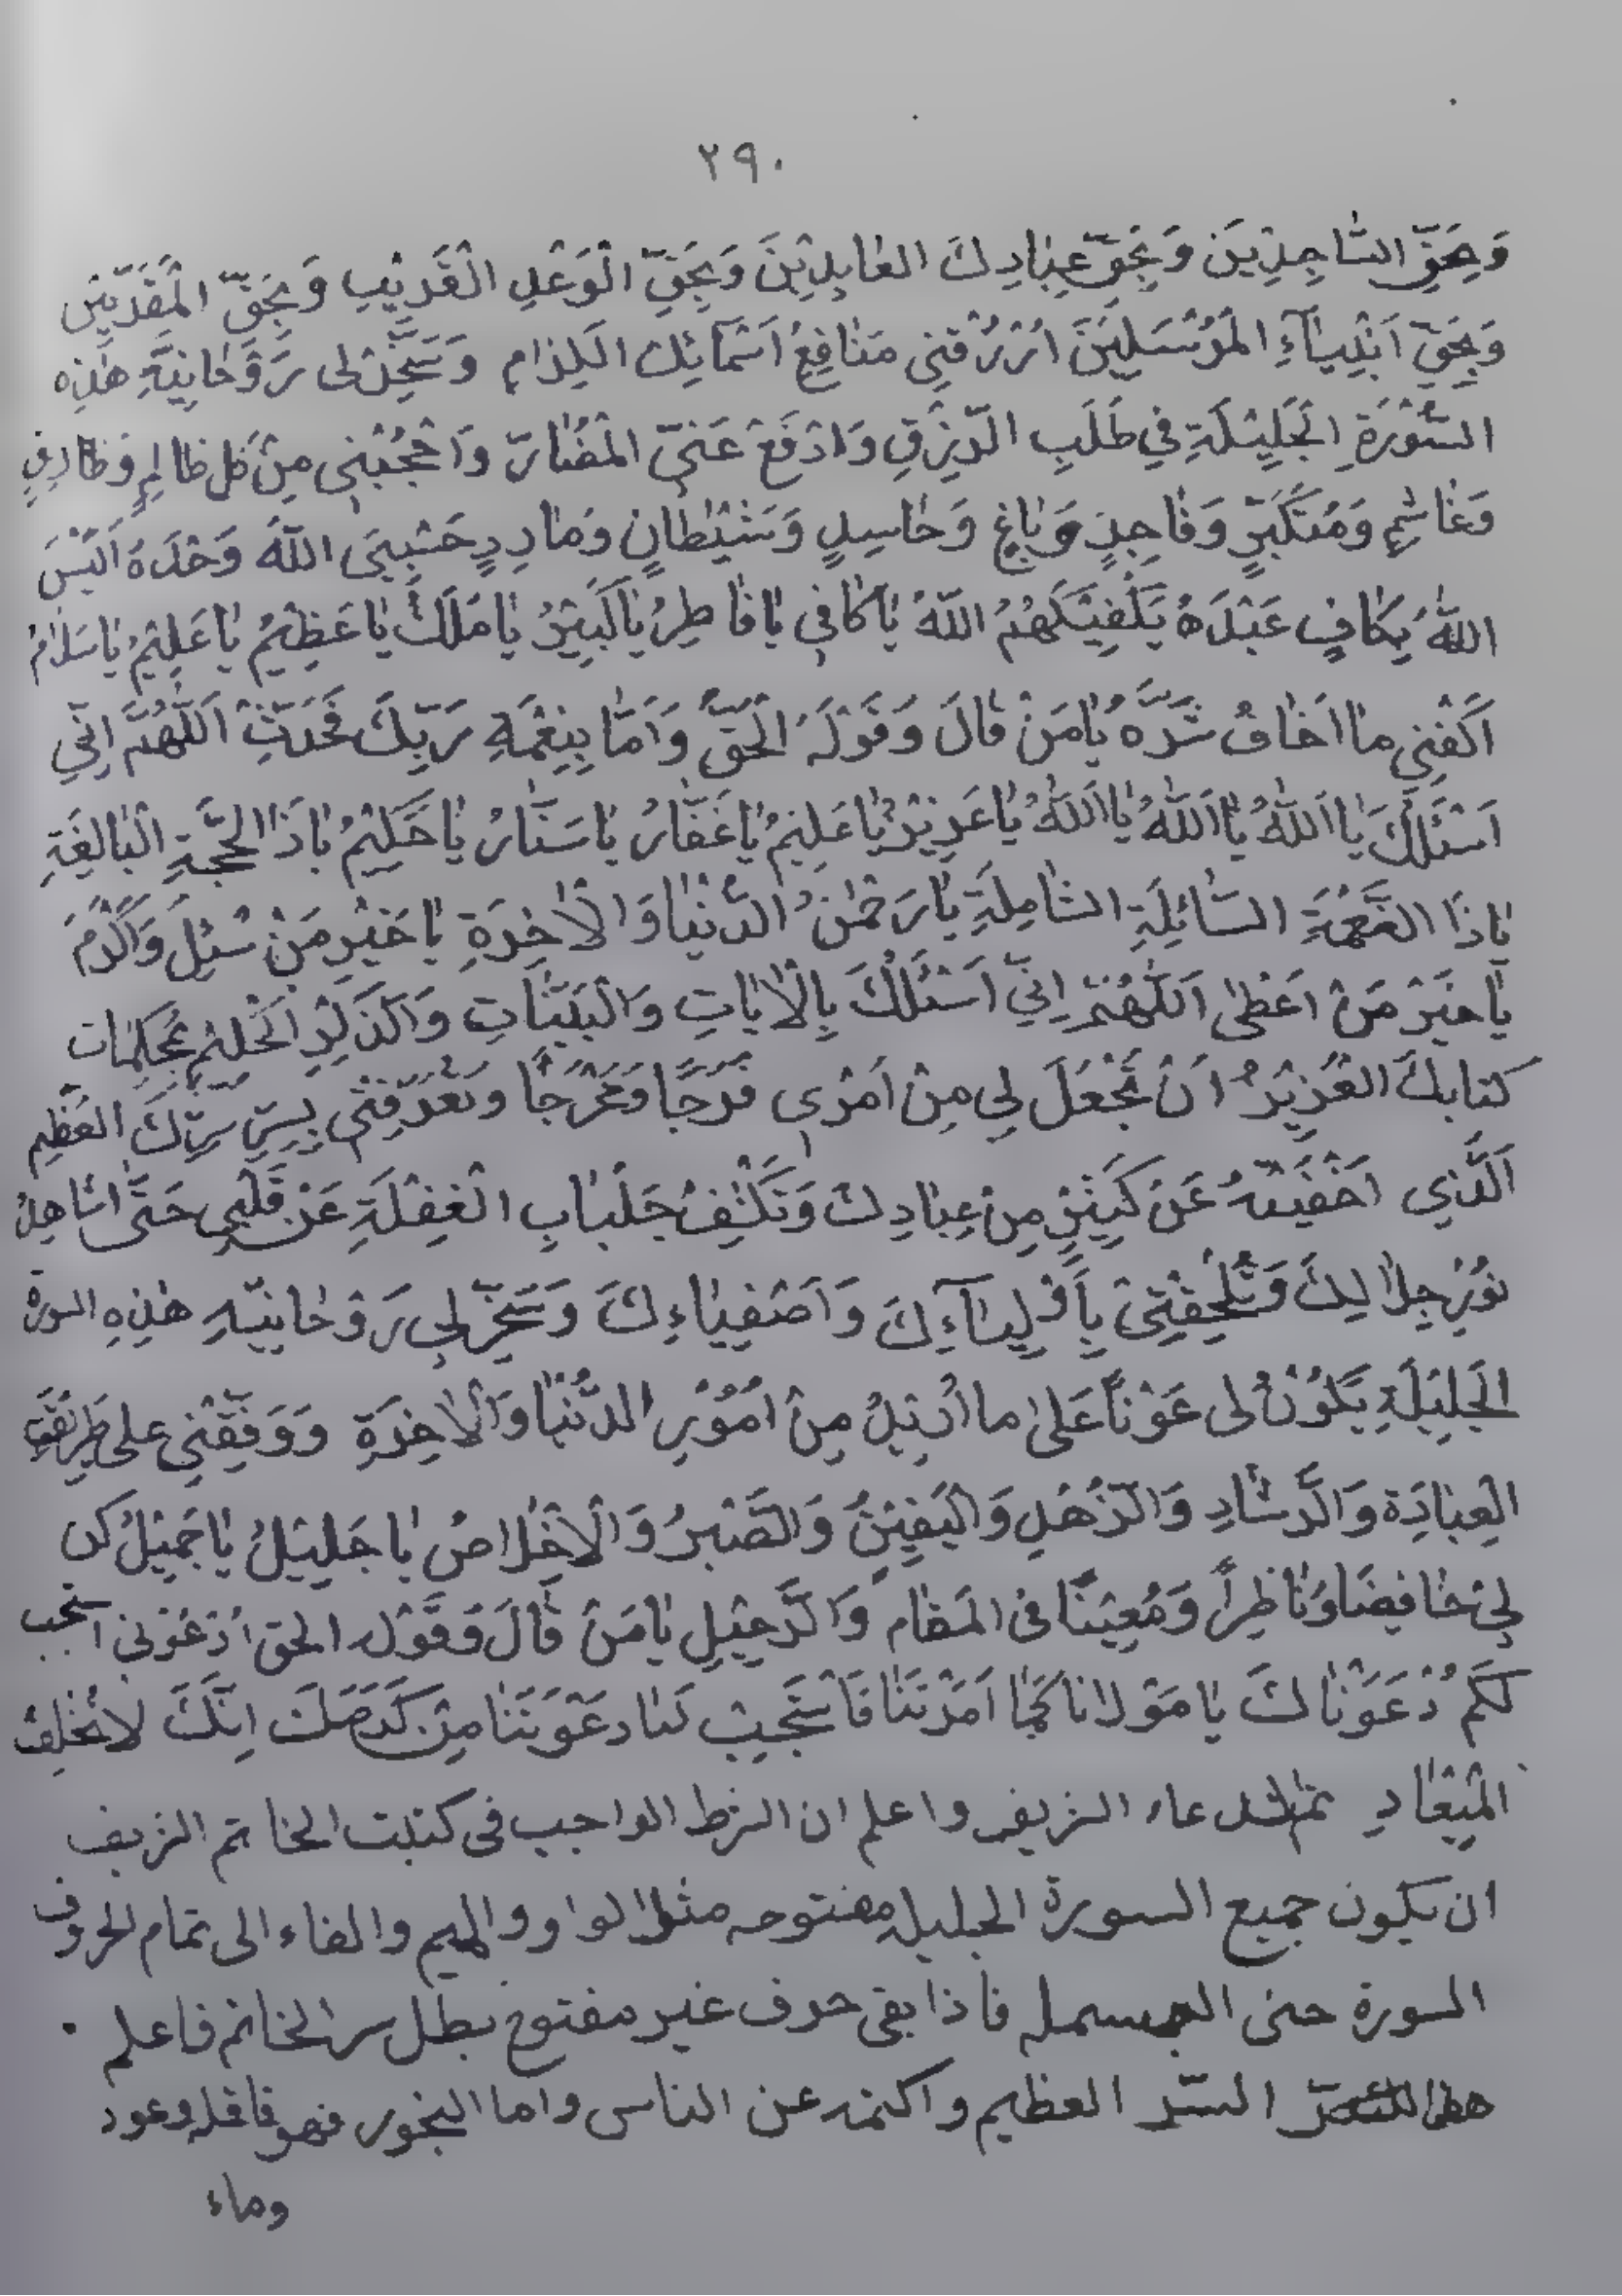 ٢٩٠
وَبِحَقِّ السَّاجِدِينَ وَبِحَقِّ عِبَادِكَ العَابِدِينَ وَبِحَقِّ الْوَعْدِ الْقَرِيْبِ وَبِحَقِّ الْمُقَرَّبِينَ
وَبِحَقِّ اَنْبِيَآءِ الْمُرْسَلِيْنَ ارْزُقْنِي مَنَافِعُ اَسْمَائِكَ الْكِرَامِ وَسَخِّرْلى رَوْحَانِيَّةِ هٰذِهِ
السُّوْرَةِ الْجَلِيْلَةِ فِي طَلَبِ الرِّزْقِ وَادْفَعْ عَنّى الْمَضَارَّ وَاحْجُبْنِى مِنْ كُل ظالِمٍ وَطَارِقٍ
وَغَاشِمٍ وَمُتَكَبِّرٍ وَفَاجِرٍ وَبَاغٍ وَحَاسِدٍ وَشَيْطَانٍ وَمَارِدٍ حَسْبِيَ اللّٰهُ وَحْدَهُ اَلَيْسَ
اللّٰهُ بِكَافٍ عَبْدَهُ يَكْفِيْكَهُمُ اللّٰهُ يَا كَافِي يَا فَاطِرُ يَا كَبِيْرُ يَا مَلِكُ يَا عَظِيْمُ يَا عَلِيْمُ يَا سَلَامُ
اَكْفِنِي مَا اَخَافُ شَرَّهُ يَا مَنْ قَالَ وَقَوْلَهُ الْحَقَّ وَاَمَّا بِنِعْمَةِ رَبِّكَ فَحَدِّثْ اَللّٰهُمَّ اِنّي
اَسْئَلُكَ يَا اَللّٰهُ يَا اَللّٰهُ يَا اَللّٰهُ يَا عَزِيْزُ يَا عَلِيْمُ يَا غَفَّارُ يَا سَتَّارُ يَا حَكِيْمُ يَا ذَا الْحُجَّةِ الْبَالِغَةِ
يَا ذَا النِّعْمَةِ السَّائِلَةِ الشَّامِلَةِ يَا رَحْمٰنُ الدُّنْيَا وَالْاٰخِرَةِ يَا خَيْرِ مَنْ سُئِلَ وَاَكْرَمَ
يَا خَيْرَ مَنْ اَعْطٰى اَللّٰهُمَّ اِنّي اَسْئَلُكَ بِالْاٰيَاتِ وَالْبَيِّنَاتِ وَالذِّكْرِ الْحَكِيْمِ بِمُحْكَمَات
كتابكَ العَزِيْزُ اَنْ تَجْعَلَ لِي مِنْ اَمْرِى فَرَجًا وَمَخْرَجًا وَتُعَرِّفَنِى بِسِرِّ سِرِّكَ العَظِيمِ
اَلَّذِي اَخْفَيْتَهُ عَنْ كَثِيْرٍ مِنْ عِبَادِكَ وَتَكْشِفُ جَلْبَابِ الْغَفْلَةِ عَنْ قَلْبِي حَتّٰى اُشَاهِدُ
نُوْرِ جَلَالِكَ وَتُلْحِقْنِىْ بِاَوْلِيَآءِكَ وَاَصْفِيَاءِكَ وَسَخِّرْ لِى رَوْحَانِيَّةِ هٰذِهِ السورة
الْجَلِيْلَةِ يَكُوْنُ لى عَوْنًا عَلٰى مَا اُرِيْدُ مِنْ اُمُوْرِ الدُّنْيَا وَالْاٰخِرَةِ وَوَفِّقْنِي على طَرِيْقَةِ
الْعِبَادَةِ وَالرَّشَادِ وَالزُّهْدِ وَالْيَقِيْنِ وَالصَّبْرُ وَالْاِخْلَاصُ يَا جَلِيْلُ يَا جَمِيْلُ كُن
لِى حَافِضًا وَنَاظِرًا وَمُعِيْنًا فى المَقَامِ وَالرَّحِيْلِ يَا مَنْ قَالَ وَقَوْلهُ الحق اُدْعُوْنى استجب
لَكُمْ دُعَوْنَاكَ يَا مَوْلَانَا كَمَا اَمَرْتَنَا فَاسْتَجِبْ لَنَا دَعْوَتَنَا مِنْ كَرَمِكَ اِنَّكَ لاتُخْلِفُ
الْمِيْعَادِ تم الدعاء الشريف واعلم ان الشرط الواجب فى كتبت الخاتم الشريف
ان يكون جميع السورة الجليله مفتوحه مثل الواو والميم والفاء الى تمام الحروف
السورة حتى البسمله فاذا بقى حرف غير مفتوح بطل سر الخاتم فاعلم
هذا السّر العظيم واكتمه عن الناس واما البخور فهو فاقله وعود
وماء